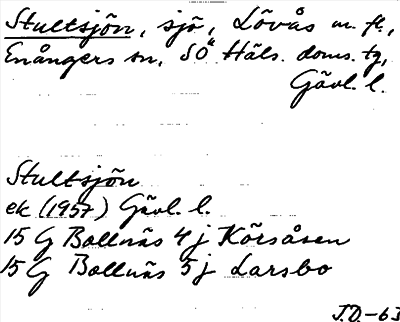 Stultsjön, sjö, Lövås m. fl.,
Enångers sn, SÖ Häls. doms. tg,
Gävl. l.
Stultsjön
ek (1957) Gävl. l.
15 G Bollnäs 4 j Körsåsen
15 G Bollnäs 5 j Larsbo
J.D.-63